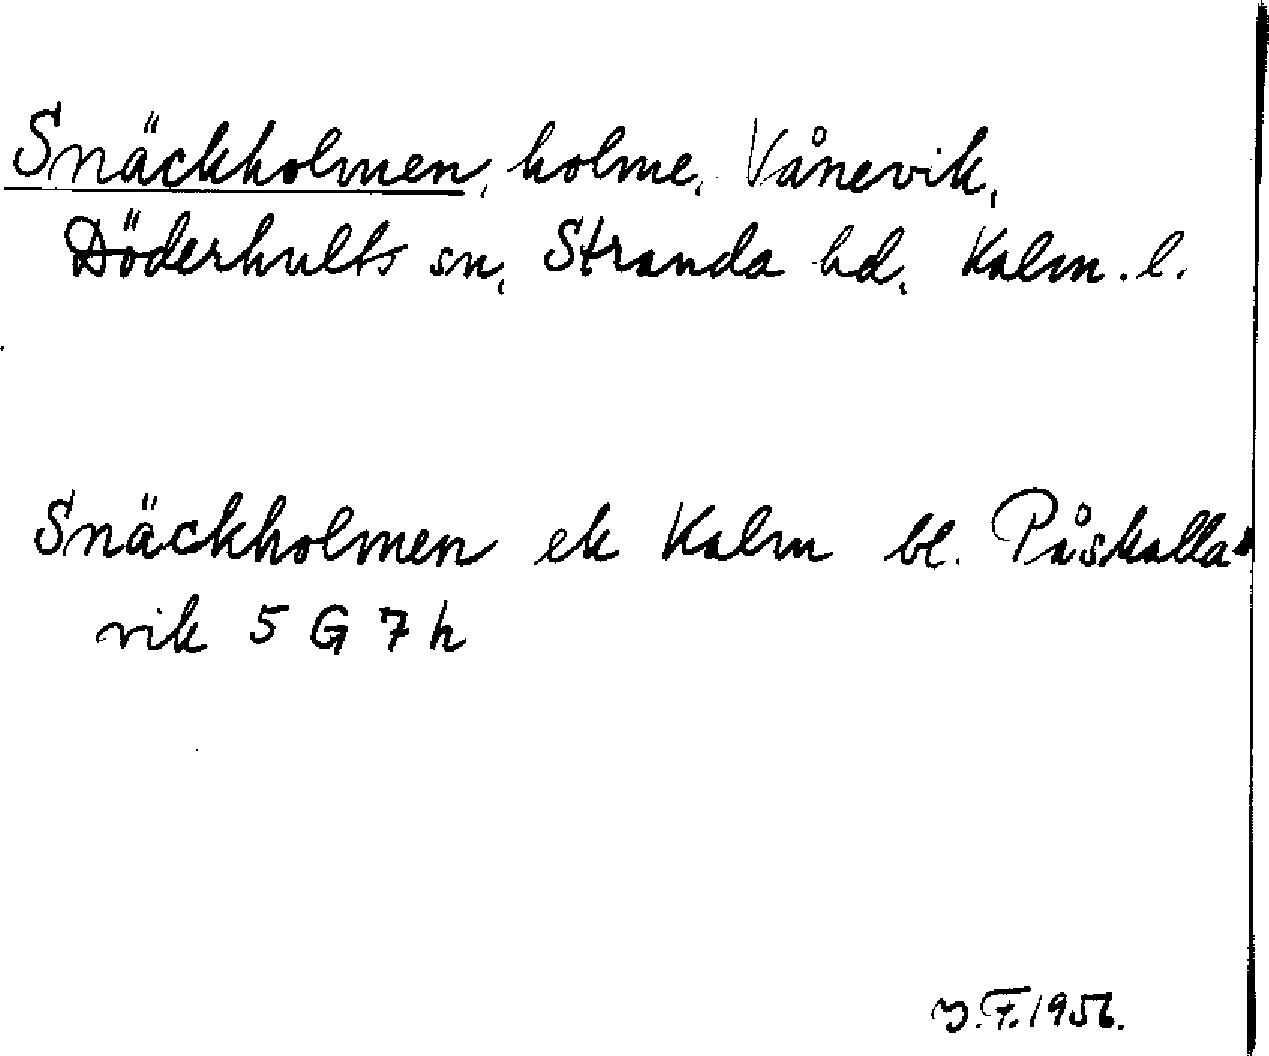 Snäckholmen, holme, Vånevik,
Döderhults sn, Stranda hd, Kalm. l.
Snäckholmen ek Kalm bl. Påskalla-
vik 5 G 7 h
Y.F. 1956.